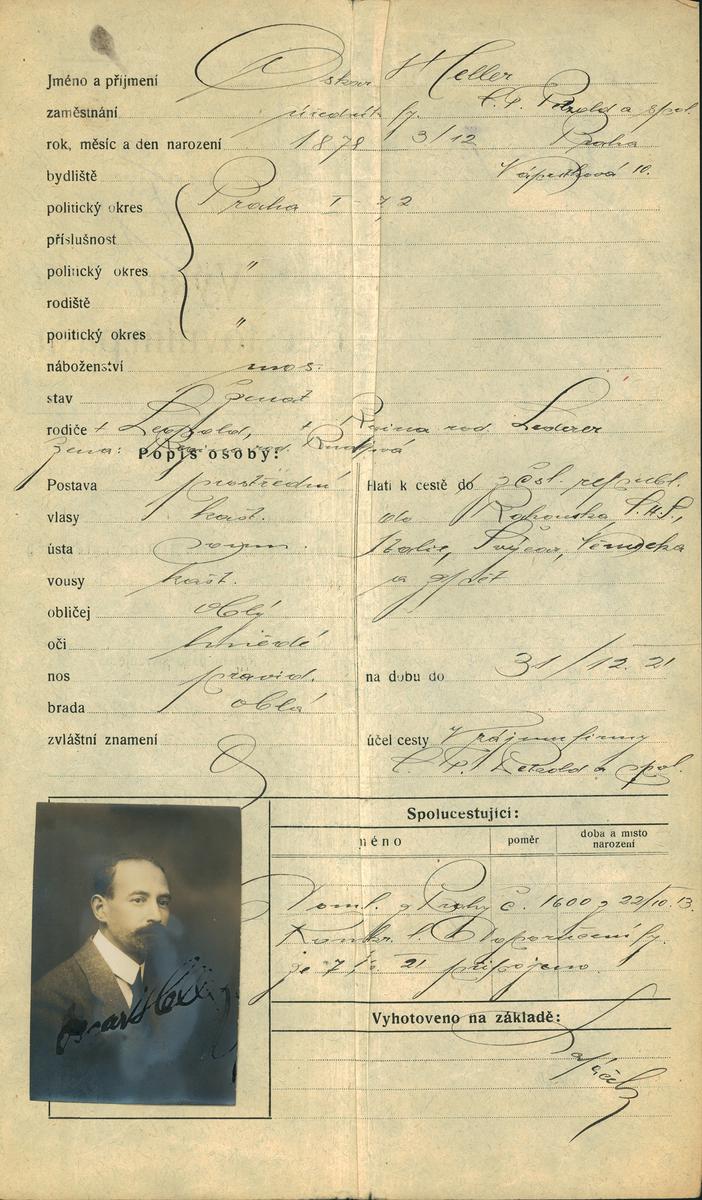 Jméno a příjmení Oskar Heller
zaměstnání úředník fy. a spol.
rok, měsíc a den narození 1878 3/12 Praha
bydliště 10.
politický okres Praha I - 7,2
příslušnost
politický okres "
rodiště
politický okres "
náboženství mos.
stav ženat
rodiče + Leopold, + Regina rod. Lederer
žena: rod.
Popis osoby:
Postava prostřední
vlasy kašt.
ústa
vousy kašt.
obličej oblý
oči hnědé
nos pravid.
brada oblá
zvláštní znamení
Platí k cestě do čsl. republ.
do Rakouska,
Italie, Švýcar, Německa
a zpět
na dobu do 31/12. 21
účel cesty V zájmu firmy
a spol.
Spolucestující:
jméno poměr doba a místo narození
Doml. z Prahy č. 1600 z 22/10. 13.
fy.
ze 7/ 21 připojeno.
Vyhotoveno na základě:
Oscar Heller